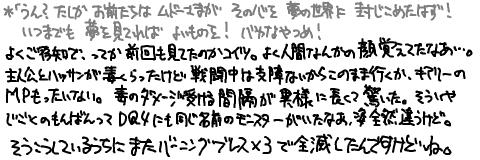 *「うん？たしか お前たちは ムドーさまが その心を 夢の世界に 封じこめたはず！
いつまでも 夢を見てれば よいものを！ バカなやつめ！
よくご存知で、っつか前回も見てたのかコイツ。よく人間なんかの顔覚えてたなあ…。
主人公とハッサンが毒くらったけど戦闘中は支障ないからこのまま行くか、ギアリーの
MPもったいない。毒のダメージ受ける間隔が異様に長くて驚いた。そういや
じごくのもんばんってDQ4にも同じ名前のモンスターがいたなあ、姿全然違うけど。
そうこうしているうちにまたバーニングブレス×3で全滅したんですけどいね。